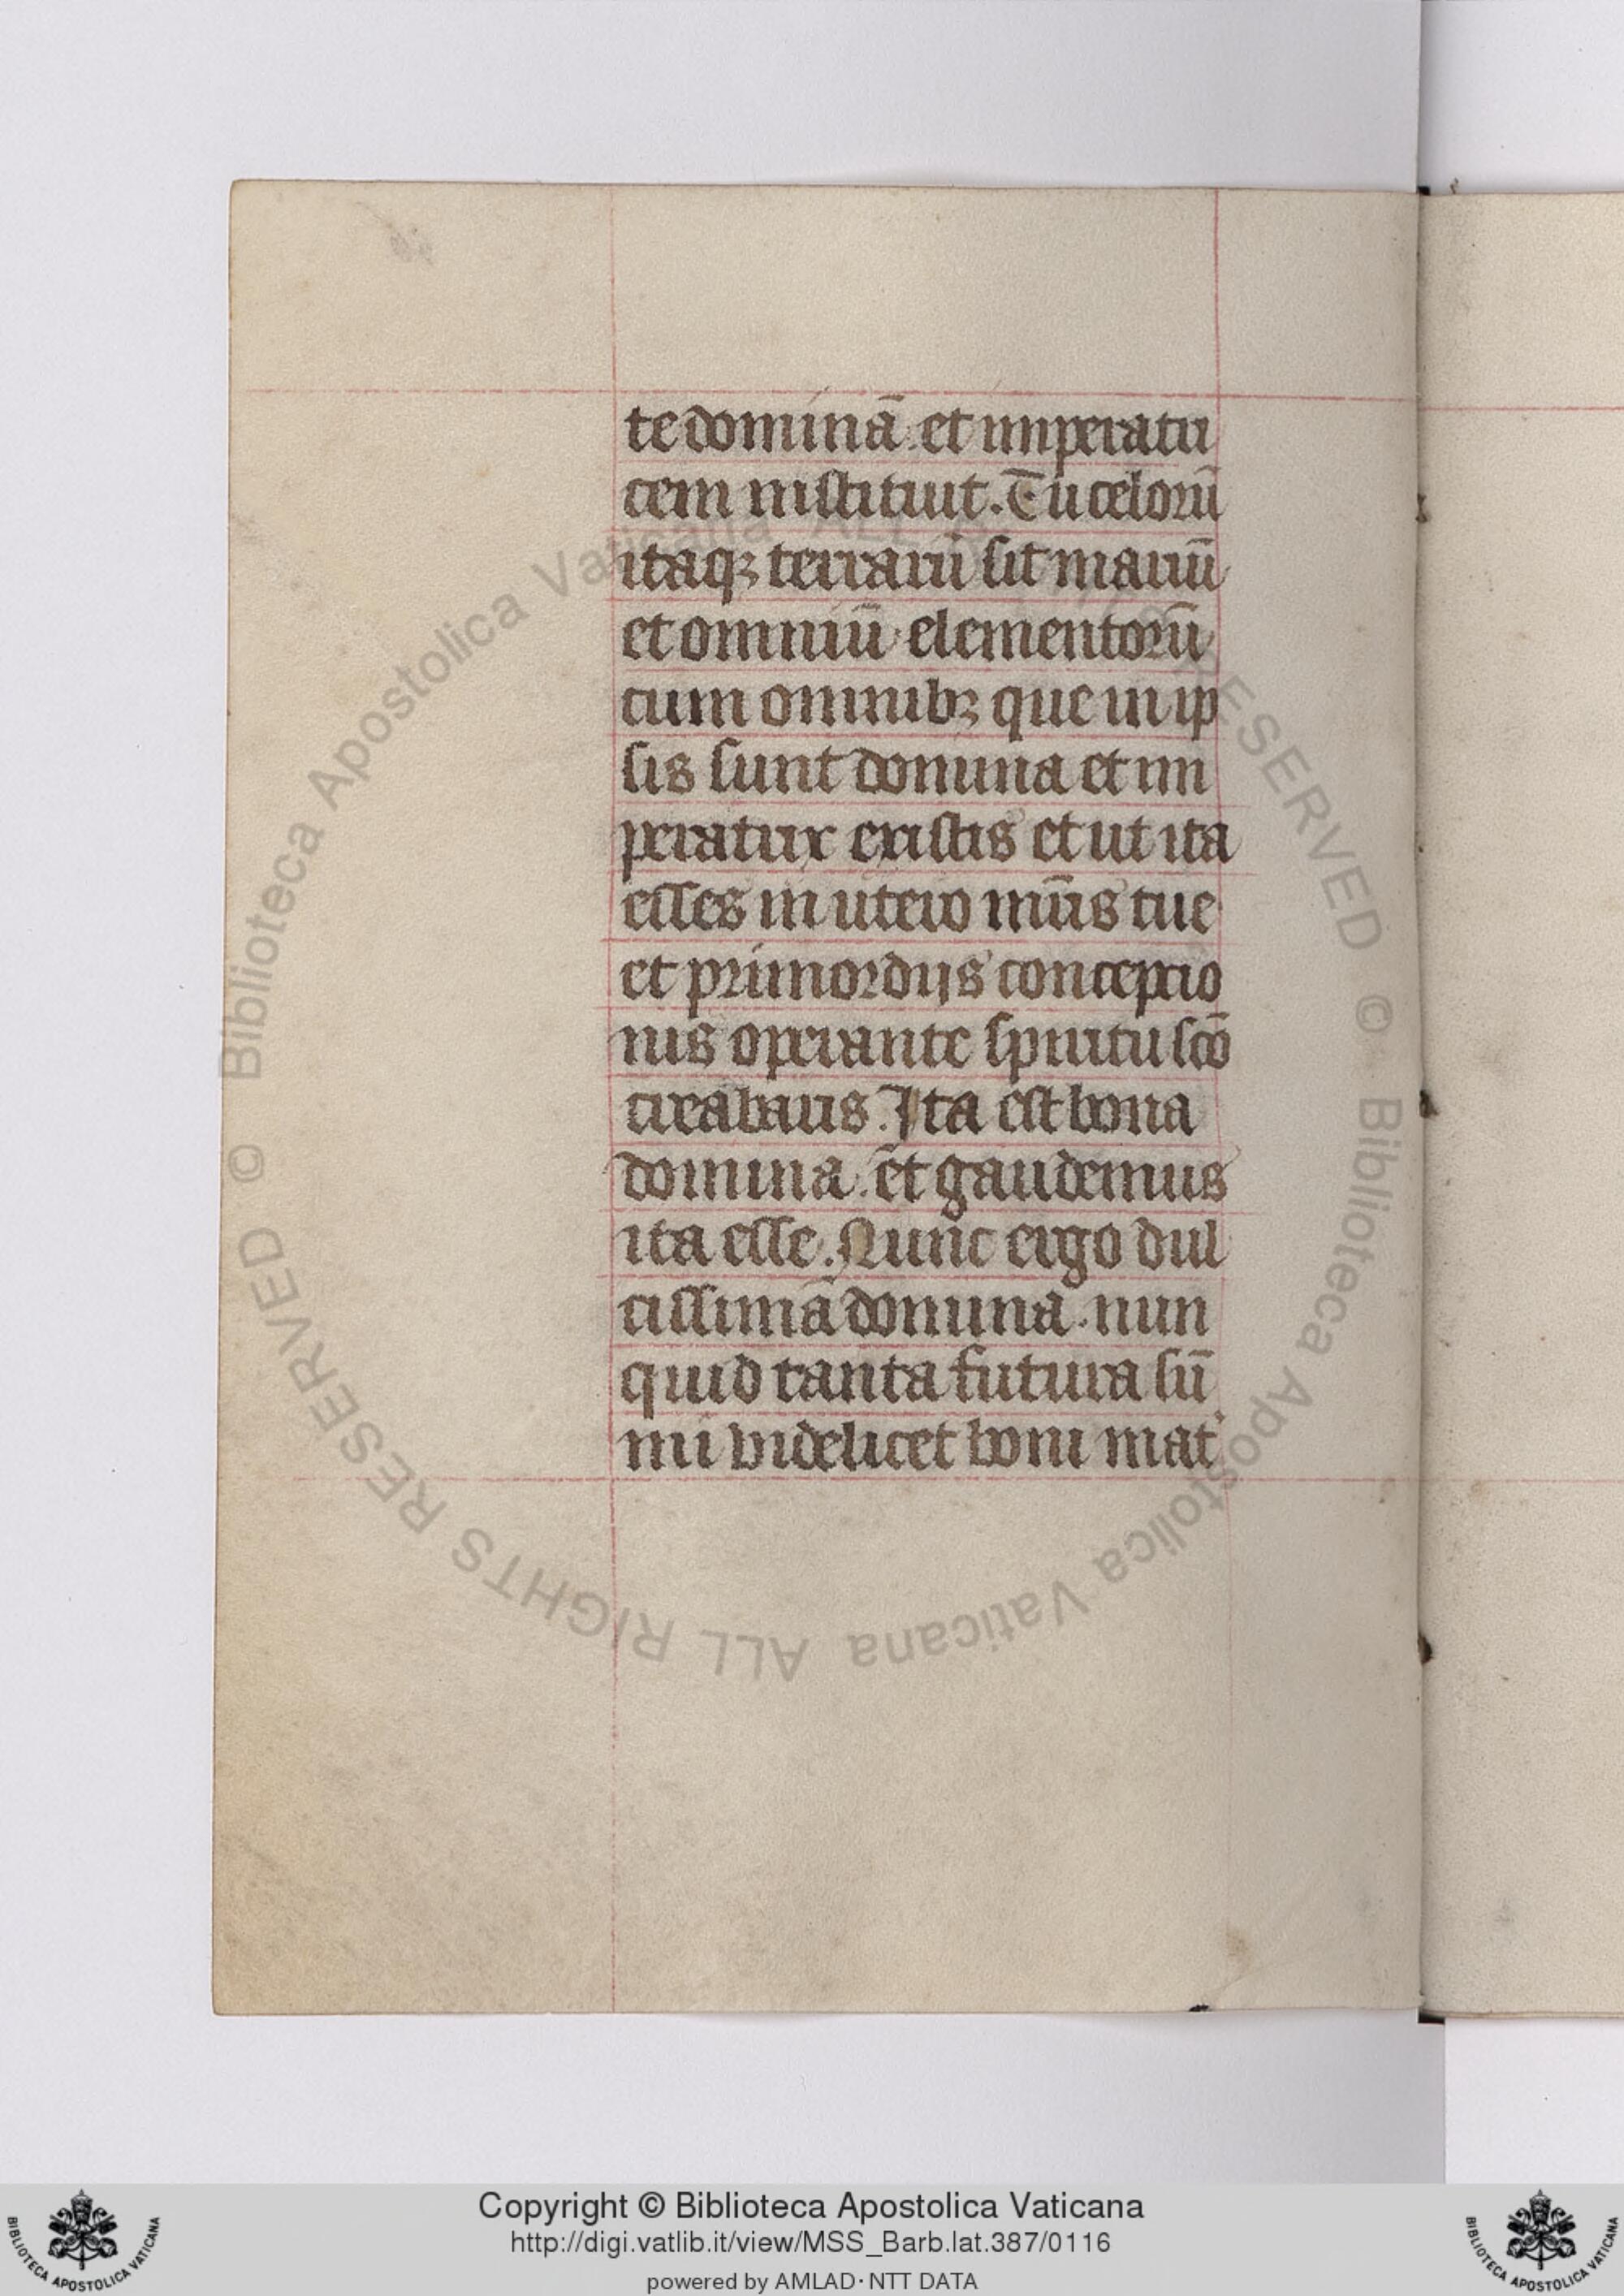 te dominā. et imperatri
cem instituit. Tu celorū
itaqꝫ terrarū sit mariū
et omniū elementorū
cum omnibꝫ que in ip
sis sunt domina et im
peratrix existis et ut ita
esses in utero mr̄is tue
et primordijs conceptio
nis operante spiritu scō
creabaris. Ita est bona
domina. et gaudemus
ita esse. Nunc ergo dul
cissima domina. nun
quid tanta futura sū
mi videlicet boni mat᾽
Biblioteca Apostolica Vaticana ALL RIGHTS RESERVED ©
Biblioteca Apostolica Vaticana ALL RIGHTS RESERVED ©
Copyright © Biblioteca Apostolica Vaticana
http://digi.vatlib.it/view/MSS_Barb.lat.387/0116
powered by AMLAD·NTT DATA
BIBLIOTECA APOSTOLICA VATICANA
BIBLIOTECA APOSTOLICA VATICANA